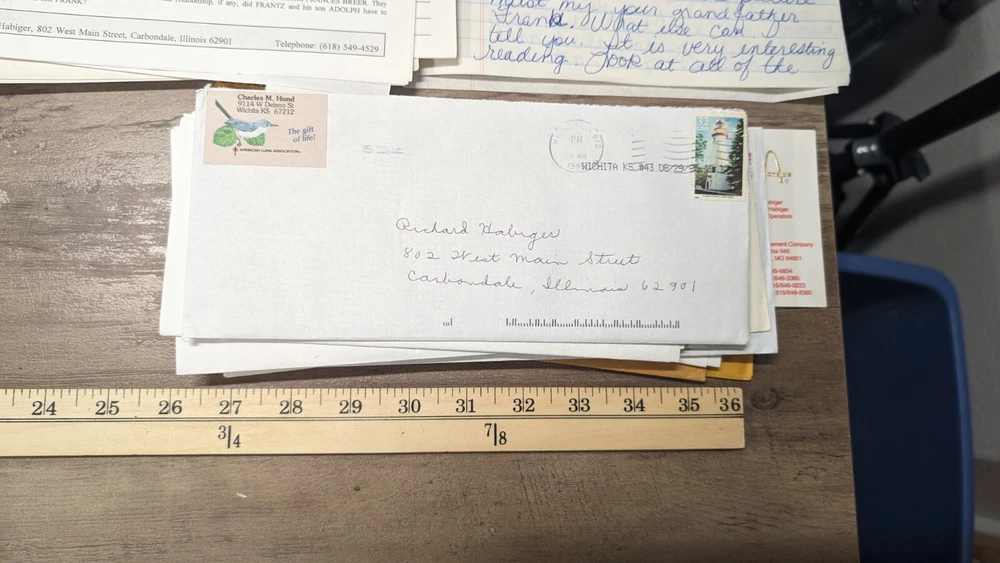 FRANK?
if any, did FRANTZ and his son ADOLPH have to
FRANCES BREER. They
Habiger, 802 West Main Street, Carbondale, Illinois 62901
Telephone: (618) 549-4529
must my your grandfather
Frank. What else can I
tell you. It is very interesting
reading. Look at all of the
Charles M. Hund
9114 W Delano St
Wichita KS 67212
The gift
of life!
AMERICAN LUNG ASSOCIATION
PM
WICHITA KS #43 08/29/
32
Richard Habiger
802 West Main Street
Carbondale, Illinois 62901
biger
Habiger
Operators
ement Company
ox 645
, MO 64601
24 25 26 27 28 29 30 31 32 33 34 35 36
3/4 7/8